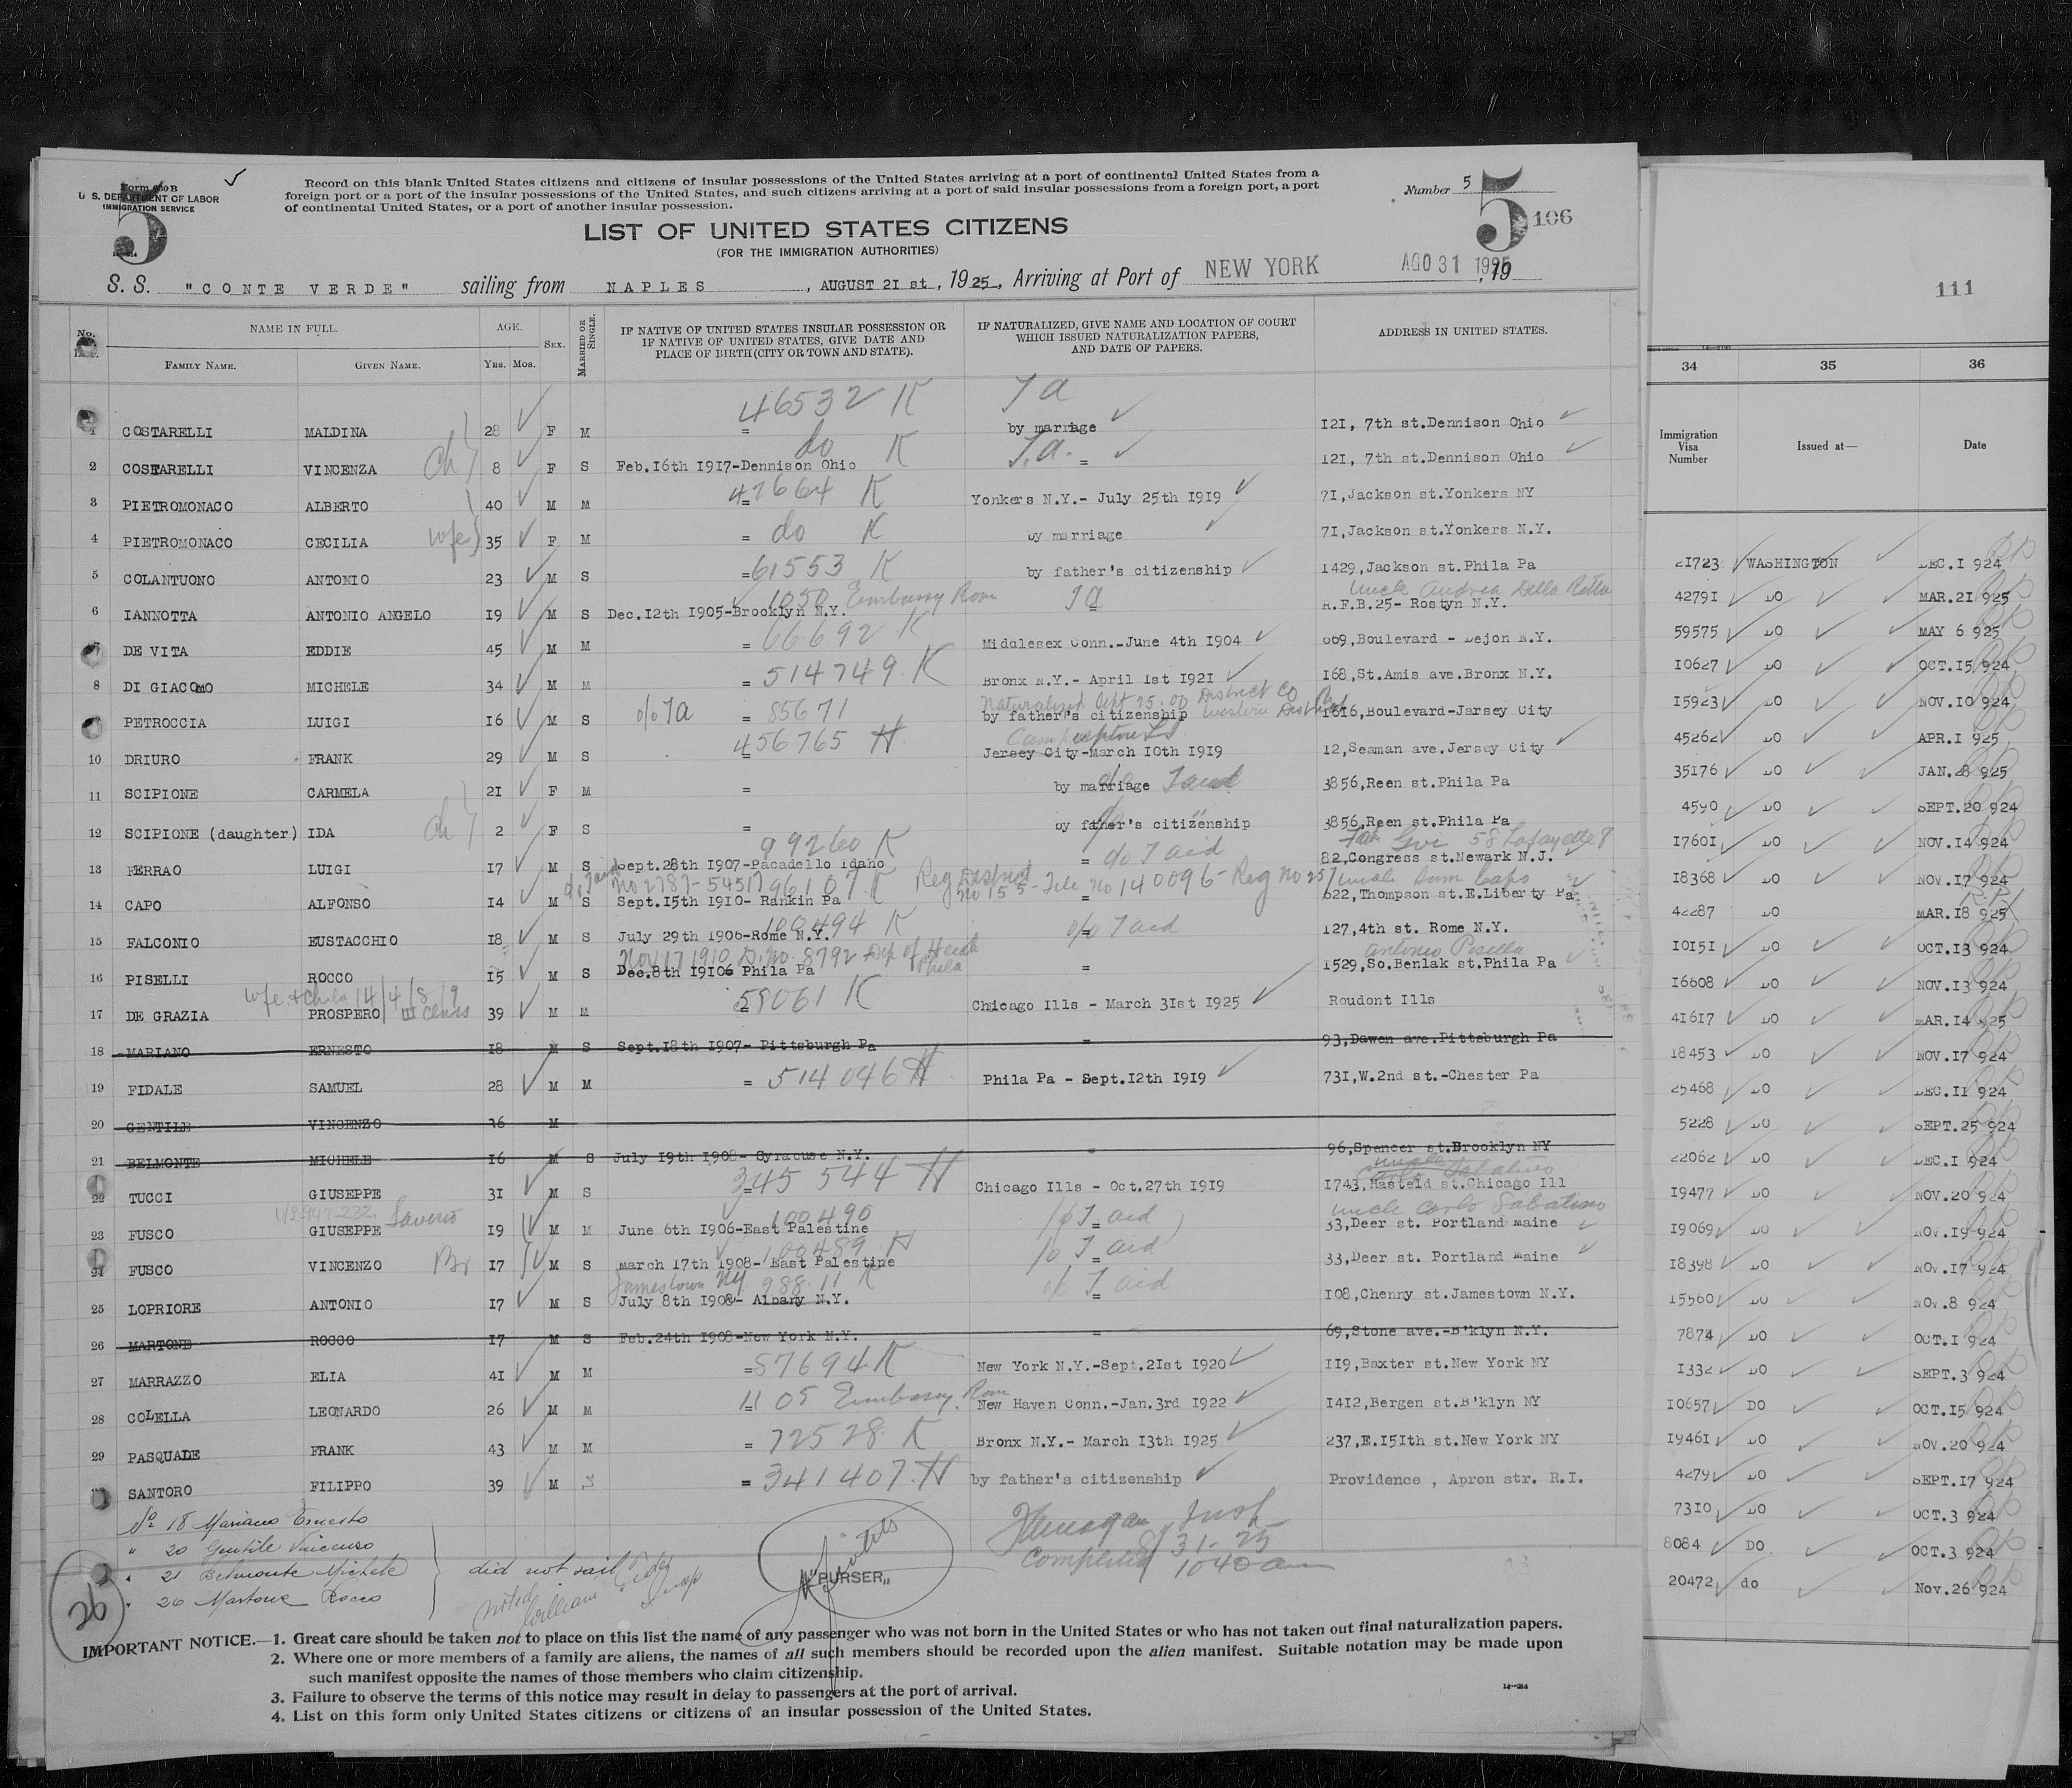 Form 630 B
U. S. DEPARTMENT OF LABOR
IMMIGRATION SERVICE
5
Record on this blank United States citizens and citizens of insular possessions of the United States arriving at a port of continental United States from a
foreign port or a port of the insular possessions of the United States, and such citizens arriving at a port of said insular possessions from a foreign port, a port
of continental United States, or a port of another insular possession.
Number 5
5 106
LIST OF UNITED STATES CITIZENS
(FOR THE IMMIGRATION AUTHORITIES)
S. S. "CONTE VERDE" sailing from NAPLES, AUGUST 2I st, 1925, Arriving at Port of NEW YORK AGO 31 1925, 19
NAME IN FULL. AGE. SEX. MARRIED OR SINGLE. IF NATIVE OF UNITED STATES INSULAR POSSESSION OR IF NATIVE OF UNITED STATES, GIVE DATE AND PLACE OF BIRTH (CITY OR TOWN AND STATE). IF NATURALIZED, GIVE NAME AND LOCATION OF COURT WHICH ISSUED NATURALIZATION PAPERS, AND DATE OF PAPERS. ADDRESS IN UNITED STATES.
FAMILY NAME. GIVEN NAME. Yrs. Mos.
46532 K
1 COSTARELLI MALDINA 28 F M = by marriage I2I, 7th st.Dennison Ohio
do K
2 COSTARELLI VINCENZA ch 8 F S Feb.I6th I9I7-Dennison Ohio = I2I, 7th st.Dennison Ohio
47664 K
3 PIETROMONACO ALBERTO 40 M M = Yonkers N.Y.- July 25th I9I9 7I,Jackson st.Yonkers NY
4 PIETROMONACO CECILIA wife 35 F M = do K by marriage 7I,Jackson st.Yonkers N.Y.
5 COLANTUONO ANTOMIO 23 M S =61553 K by father's citizenship I429,Jackson st.Phila Pa
1050 Embassy Room uncle Andrea Della Ratta
6 IANNOTTA ANTONIO ANGELO I9 M S Dec.I2th I905-Brooklyn N.Y. = R.F.B.25- Rostyn N.Y.
66692 K
7 DE VITA EDDIE 45 M M = Middlesex Conn.-June 4th I904 609,Boulevard - Dejon N.Y.
8 DI GIACOMO MICHELE 34 M M = 514749 K Bronx N.Y.- April Ist I92I I68,St.Amis ave.Bronx N.Y.
9 PETROCCIA LUIGI I6 M S = 85671 by father's citizenship I6I6,Boulevard-Jarsey City
456765 H
10 DRIURO FRANK 29 M S = Jersey City-March IOth I9I9 I2,Seaman ave.Jersey City
11 SCIPIONE CARMELA 2I F M = by marriage 3856,Reen st.Phila Pa
12 SCIPIONE (daughter) IDA ch 2 F S = by father's citizenship 3856,Reen st.Phila Pa
99260 K 58 Lafayette
13 FERRAO LUIGI I7 M S Sept.28th I907-Pacadello Idaho = 82,Congress st.Newark N.J.
96107 K Reg District No 155 - File No 140096 - Reg No 257
14 CAPO ALFONSO I4 M S Sept.I5th I9I0- Rankin Pa = 622, Thompson st.E.Liberty Pa
100494 K
15 FALCONIO EUSTACCHIO I8 M S July 29th I906-Rome N.Y. = I27,4th st. Rome N.Y.
Nov 17 1910 D. No. 8792 Dep of Health Phila
16 PISELLI ROCCO I5 M S Dec.8th I9I06 Phila Pa = I529,So.Benlak st.Phila Pa
wife & child 14/4/8/9 III class
17 DE GRAZIA PROSPERO 39 M M 58061 K Chicago Ills - March 3Ist I925 Roudont Ills
18 MARIANO ERNESTO I8 M S Sept.I8th I907- Pittsburgh Pa = 93,Dawen ave.Pittsburgh Pa
19 FIDALE SAMUEL 28 M M = 514046 H Phila Pa - Sept.I2th I9I9 73I,W.2nd st.-Chester Pa
20 GENTILE VINCENZO 36 M
21 BELMONTE MICHELE I6 M S July I9th I908- Syracuse N.Y. = 96,Spencer st.Brooklyn NY
345544 H
22 TUCCI GIUSEPPE 3I M S = Chicago Ills - Oct.27th I9I9 I743,Hasteld st.Chicago Ill
Saverio 100490 uncle Carlo Sabatino
23 FUSCO GIUSEPPE I9 M M June 6th I906-East Palestine = 33,Deer st. Portland maine
100489 H
24 FUSCO VINCENZO Br I7 M S march I7th I908- East Palestine = 33,Deer st. Portland maine
Jamestown NY 98811 K
25 LOPRIORE ANTONIO I7 M S July 8th I908- Albany N.Y. = I08,Chenny st.Jamestown N.Y.
26 MARTONE ROCCO I7 M S Feb.24th I908-New York N.Y. = 69,Stone ave.-B'klyn N.Y.
27 MARRAZZO ELIA 4I M M =87694 K New York N.Y.-Sept.2Ist I920 II9,Baxter st.New York NY
28 COLELLA LEONARDO 26 M M = 1105 Embassy Room New Haven Conn.-Jan.3rd I922 I4I2,Bergen st.B'klyn NY
29 PASQUALE FRANK 43 M M = 72528 K Bronx N.Y.- March I3th I925 237,E.I5Ith st.New York NY
SANTORO FILIPPO 39 M S = 341407 H by father's citizenship Providence , Apron str. R.I.
No 18 Mariano Ernesto
" 20 Gentile Vincenzo
" 21 Belmonte Michele
" 26 Martone Rocco
did not sail
noted William Insp
26
"PURSER"
Flanagan Insp
Completed 8/31-25
1040 am
IMPORTANT NOTICE.—1. Great care should be taken not to place on this list the name of any passenger who was not born in the United States or who has not taken out final naturalization papers.
2. Where one or more members of a family are aliens, the names of all such members should be recorded upon the alien manifest. Suitable notation may be made upon
such manifest opposite the names of those members who claim citizenship.
3. Failure to observe the terms of this notice may result in delay to passengers at the port of arrival.
4. List on this form only United States citizens or citizens of an insular possession of the United States.
111
34 35 36
Immigration Visa Number Issued at— Date
2I723 WASHINGTON DEC.I 924
4279I DO MAR.2I 925
59575 DO MAY 6 925
I0627 DO OCT.I5 924
I5923 DO NOV.I0 924
45262 DO APR.I 925
35I76 DO JAN.28 925
4590 DO SEPT.20 924
I760I DO NOV.I4 924
I8368 DO NOV.I7 924
42287 DO MAR.I8 925
I0I5I DO OCT.I3 924
I6608 DO NOV.I3 924
4I6I7 DO MAR.I4 925
I8453 DO NOV.I7 924
25468 DO DEC.II 924
5228 DO SEPT.25 924
22062 DO DEC.I 924
I9477 DO NOV.20 924
I9069 DO NOV.I9 924
I8398 DO NOV.I7 924
I5560 DO NOV.8 924
7874 DO OCT.I 924
I332 DO SEPT.3 924
I0657 DO OCT.I5 924
I946I DO NOV.20 924
4279 DO SEPT.I7 924
73I0 DO OCT.3 924
8084 DO OCT.3 924
20472 do Nov.26 924